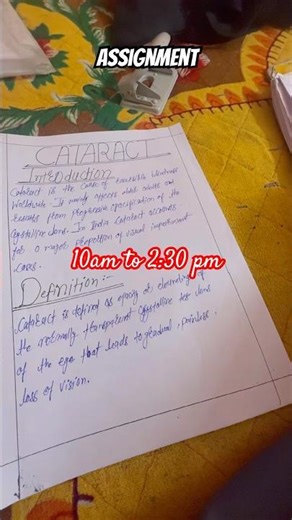 ASSIGNMENT
CATARACT
Introduction
Cataract is the cause of Blindness
Worldwide. It mainly affects older adults and
results from progressive opacification of the
crystalline lens. In India Cataract accounts
for a major proportion of visual impairment
cases.
10am to 2:30 pm
Definition :-
Cataract is defined as opacity or clouding of
the normally transparent crystalline lens
of the eye that leads to gradual, painless,
loss of vision.